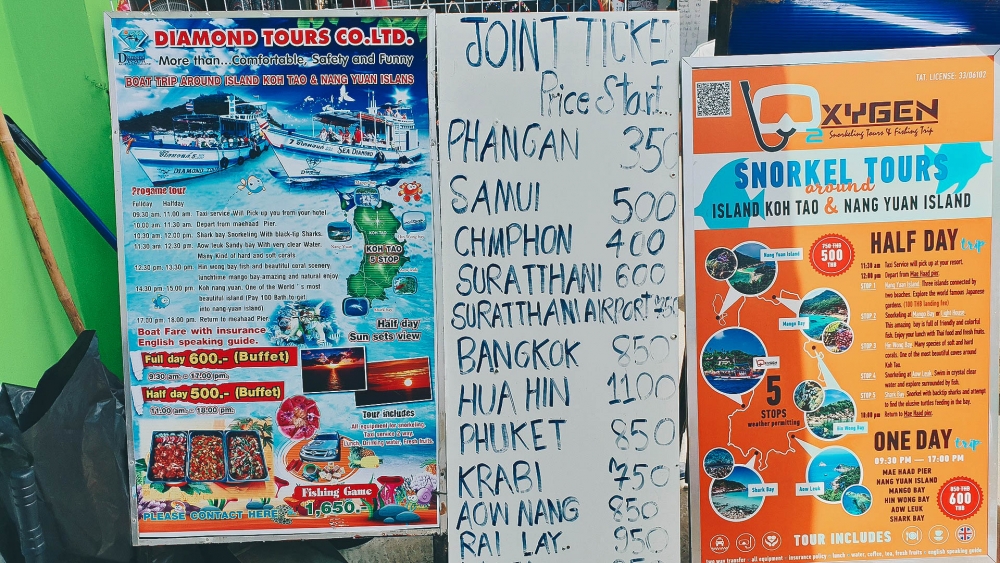 DIAMOND TOURS CO.LTD.
More than...Comfortable, Safety and Funny
BOAT TRIP AROUND ISLAND KOH TAO & NANG YUAN ISLANS
SEA DIAMOND
Programe tour
Fullday Halfday
09:30 am. 11:00 am. Taxi service Will Pick up you from your hotel.
10:00 am. 11:30 am. Depart from maehaad Pier.
10:30 am. 12:00 pm. Shark bay Snorkeling With black-tip Sharks.
11:30 am. 12:30 pm. Aow leuk Sandy bay With very clear Water.
Many Kind of hard and soft corals.
12:30 pm. 13:30 pm. Hin wong bay fish and beautiful coral scenery,
lunchtime mango bay amazing and natural enjoy.
14:30 pm. 15:00 pm. Koh nang yuan. One of the World's most
beautiful island (Pay 100 Bath to get
into nang yuan island)
17:00 pm. 18:00 pm. Return to meahaad Pier.
KOH TAO
5 STOP
Boat Fare with insurance
English speaking guide.
Full day 600.- (Buffet)
9:30 am - 17:00 pm.
Half day 500.- (Buffet)
11:00 am - 18:00 pm.
Half day
Sun sets view
Tour includes
All equipment for snorkeling,
Taxi service 2 way,
Lunch, Drinking water, Fresh fruits
Fishing Game
1,650.-
PLEASE CONTACT HERE
JOINT TICKE
Price Start..
PHANGAN 350
SAMUI 500
CHMPHON 400
SURATTHANI 600
SURATTHANI AIRPORT 750
BANGKOK 850
HUA HIN 1100
PHUKET 850
KRABI 750
AOW NANG 850
RAI LAY.. 950
TAT LICENSE: 33/06102
OXYGEN
2
Snorkeling Tours & Fishing Trip
SNORKEL TOURS
around
ISLAND KOH TAO & NANG YUAN ISLAND
Nang Yuan Island
750 THB
500
THB
HALF DAY trip
11:30 am Taxi Service will pick up at your resort.
12:00 pm Depart from Mae Haad pier.
STOP 1 Nang Yuan Island Three islands connected by
two beaches. Explore the world famous Japanese
gardens. (100 THB landing fee)
STOP 2 Snorkeling at Mango Bay or Light House
This amazing bay is full of friendly and colorful
fish. Enjoy your lunch with Thai food and fresh fruits.
STOP 3 Hin Wong Bay. Many species of soft and hard
corals. One of the most beautiful coves around
Koh Tao.
STOP 4 Snorkeling at Aow Leuk. Swim in crystal clear
water and explore surrounded by fish.
STOP 5 Shark Bay. Snorkel with blacktip sharks and attempt
to find the elusive turtles feeding in the bay.
18:00 pm Return to Mae Haad pier.
Mango Bay
5
STOPS
weather permitting
Hin Wong Bay
Shark Bay
Aow Leuk
ONE DAY trip
09:30 PM — 17:00 PM
MAE HAAD PIER
NANG YUAN ISLAND
MANGO BAY
HIN WONG BAY
AOW LEUK
SHARK BAY
850 THB
600
THB
TOUR INCLUDES
two way transfer - all equipment - insurance policy - lunch - water, coffee, tea, fresh fruits - english speaking guide